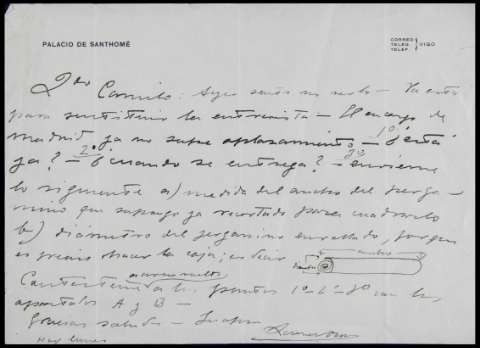 PALACIO DE SANTHOMÉ
CORREO
TELEG. VIGO
TELEF.
Qdo Camilo: Ayer
para sustituirno la entrevista — El encargo de
madrid ya no sufre aplazamiento — 1º ¿está
ya? — 2º ¿cuando se entrega? — 3º envieme
lo siguiente a) medida del ancho del perga-
mino que supongo ya recortado para cuadrarlo
b) diámetro del pergamino enrollado, porque
es preciso hacer la caja, es decir
ancho
Contésteme a los puntos 1º - 2º - 3º con los
a vuelta
apartados A y B —
Gracias saludos —
Hoy lunes